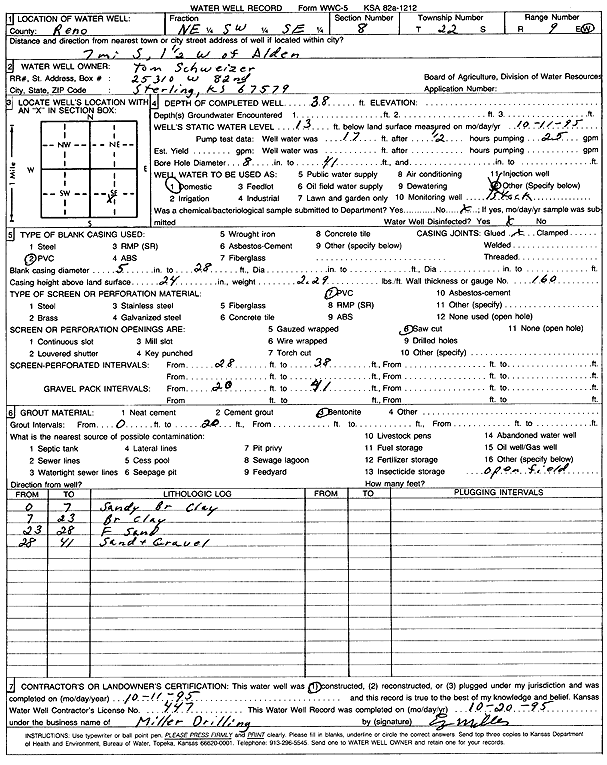 WATER WELL RECORD Form WWC-5 KSA 82a-1212
1 LOCATION OF WATER WELL: Fraction Section Number Township Number Range Number
County: Reno NE ¼ SW ¼ SE ¼ 8 T 22 S R 9 E/W
Distance and direction from nearest town or city street address of well if located within city?
7 mi S, 1½ W of Alden
2 WATER WELL OWNER: Tom Schweizer
RR#, St. Address, Box # : 25310 W 82nd Board of Agriculture, Division of Water Resources
City, State, ZIP Code : Sterling, KS 67579 Application Number:
3 LOCATE WELL'S LOCATION WITH AN "X" IN SECTION BOX:
N
NW NE
W E
SW SE
X
S
1 Mile
4 DEPTH OF COMPLETED WELL 38 ft. ELEVATION:
Depth(s) Groundwater Encountered 1. ft. 2. ft. 3. ft.
WELL'S STATIC WATER LEVEL 13 ft. below land surface measured on mo/day/yr 10-11-95
Pump test data: Well water was 17 ft. after ½ hours pumping 25 gpm
Est. Yield gpm: Well water was ft. after hours pumping gpm
Bore Hole Diameter 8 in. to 41 ft., and in. to ft.
WELL WATER TO BE USED AS: 5 Public water supply 8 Air conditioning 11 Injection well
1 Domestic 3 Feedlot 6 Oil field water supply 9 Dewatering 12 Other (Specify below)
2 Irrigation 4 Industrial 7 Lawn and garden only 10 Monitoring well Stock
Was a chemical/bacteriological sample submitted to Department? Yes No X ; If yes, mo/day/yr sample was submitted Water Well Disinfected? Yes X No
5 TYPE OF BLANK CASING USED: 5 Wrought iron 8 Concrete tile CASING JOINTS: Glued X Clamped
1 Steel 3 RMP (SR) 6 Asbestos-Cement 9 Other (specify below) Welded
2 PVC 4 ABS 7 Fiberglass Threaded
Blank casing diameter 5 in. to 28 ft., Dia in. to ft., Dia in. to ft.
Casing height above land surface 24 in., weight 2.29 lbs./ft. Wall thickness or gauge No. 160
TYPE OF SCREEN OR PERFORATION MATERIAL: 7 PVC 10 Asbestos-cement
1 Steel 3 Stainless steel 5 Fiberglass 8 RMP (SR) 11 Other (specify)
2 Brass 4 Galvanized steel 6 Concrete tile 9 ABS 12 None used (open hole)
SCREEN OR PERFORATION OPENINGS ARE: 5 Gauzed wrapped 8 Saw cut 11 None (open hole)
1 Continuous slot 3 Mill slot 6 Wire wrapped 9 Drilled holes
2 Louvered shutter 4 Key punched 7 Torch cut 10 Other (specify)
SCREEN-PERFORATED INTERVALS: From 28 ft. to 38 ft., From ft. to ft.
From ft. to ft., From ft. to ft.
GRAVEL PACK INTERVALS: From 20 ft. to 41 ft., From ft. to ft.
From ft. to ft., From ft. to ft.
6 GROUT MATERIAL: 1 Neat cement 2 Cement grout 3 Bentonite 4 Other
Grout Intervals: From 0 ft. to 20 ft., From ft. to ft., From ft. to ft.
What is the nearest source of possible contamination: 10 Livestock pens 14 Abandoned water well
1 Septic tank 4 Lateral lines 7 Pit privy 11 Fuel storage 15 Oil well/Gas well
2 Sewer lines 5 Cess pool 8 Sewage lagoon 12 Fertilizer storage 16 Other (specify below)
3 Watertight sewer lines 6 Seepage pit 9 Feedyard 13 Insecticide storage open field
Direction from well? How many feet?
FROM TO LITHOLOGIC LOG FROM TO PLUGGING INTERVALS
0 7 Sandy Br Clay
7 23 Br Clay
23 28 F Sand
28 41 Sand + Gravel
7 CONTRACTOR'S OR LANDOWNER'S CERTIFICATION: This water well was (1) constructed, (2) reconstructed, or (3) plugged under my jurisdiction and was
completed on (mo/day/year) 10-11-95 and this record is true to the best of my knowledge and belief. Kansas
Water Well Contractor's License No. 447 This Water Well Record was completed on (mo/day/yr) 10-20-95
under the business name of Miller Drilling by (signature)
INSTRUCTIONS: Use typewriter or ball point pen. PLEASE PRESS FIRMLY and PRINT clearly. Please fill in blanks, underline or circle the correct answers. Send top three copies to Kansas Department
of Health and Environment, Bureau of Water, Topeka, Kansas 66620-0001. Telephone: 913-296-5545. Send one to WATER WELL OWNER and retain one for your records.